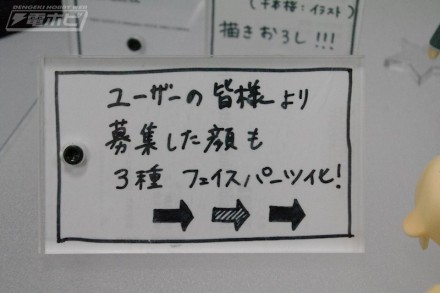 DENGEKI HOBBY WEB
電ホビ
(千本桜:イラスト)
描きおろし!!!
ユーザーの皆様より
募集した顔も
3種 フェイスパーツ化!